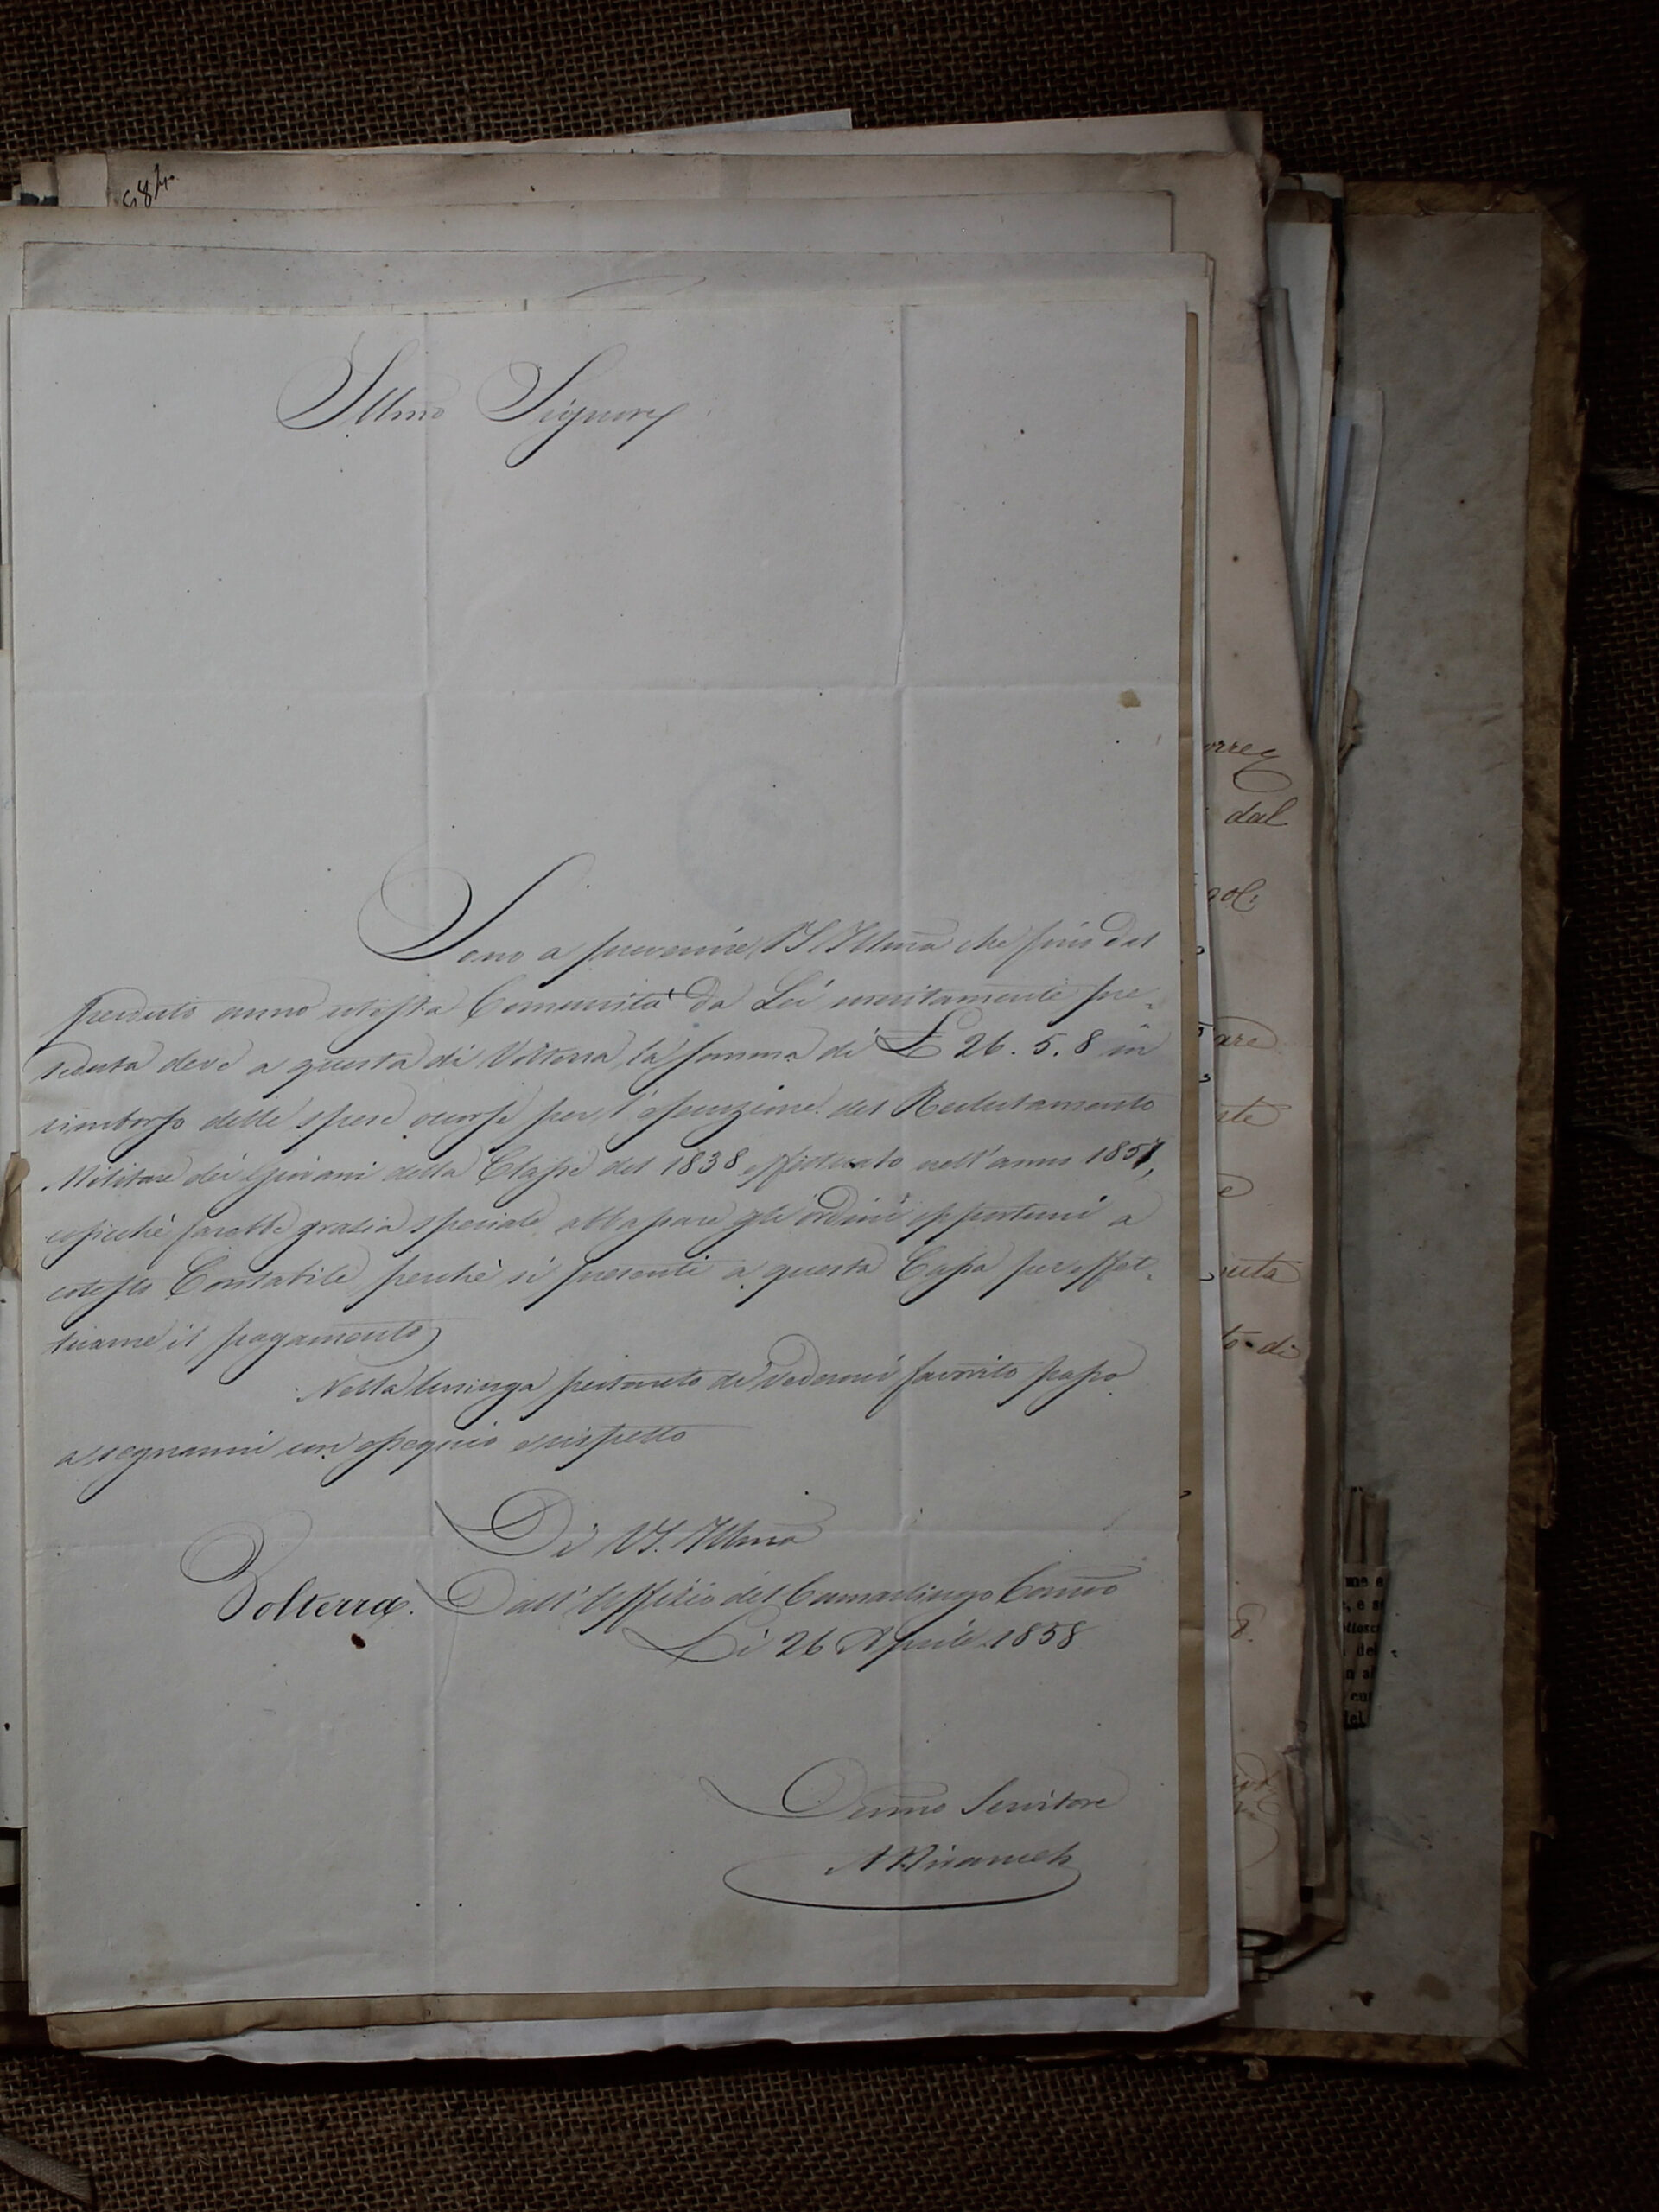 984.
Illmo Signore
Sono a prevenire VS. Illma che fino dal
perduto anno cotesta Comunità da Lei meritamente pre-
seduta deve a questa di Volterra la somma di £ 26. 5. 8 in
rimborso delle spese occorse per l'esecuzione del Reclutamento
Militare dei Giovani della Classe del 1838 effettuato nell'anno 1857,
cosicchè sarebbe grazia speciale abbassare gli ordini opportuni a
cotesto Contabile perchè si presenti a questa Cassa per effet-
tuarne il pagamento
Nella lusinga pertanto di vedermi favorito passo
a segnarmi con ossequio e rispetto
Di VS. Illma
Volterra. Dall' Uffizio del Camarlingo Comvo
Li 26 Aprile 1858
Devmo Servitore
dal
are